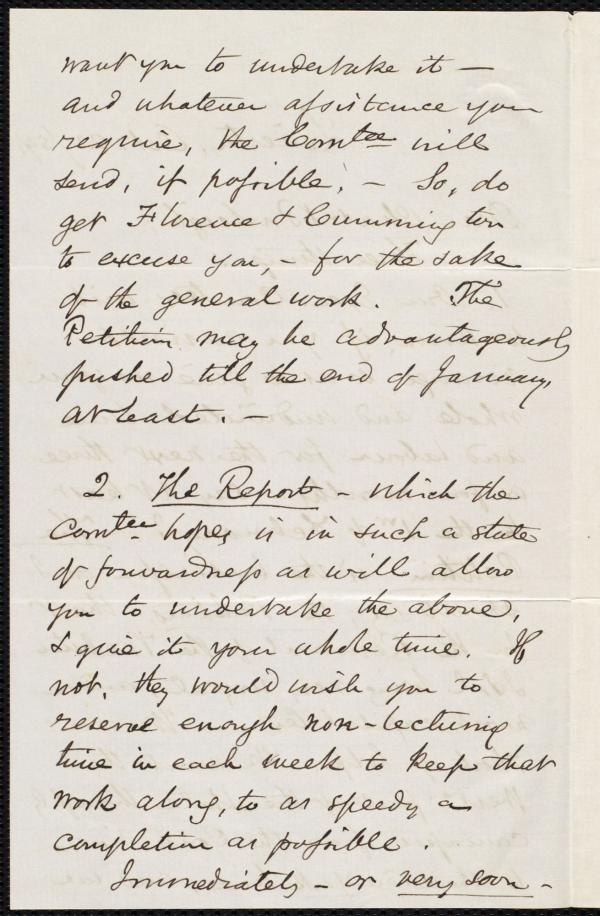 want you to undertake it —
and whatever assistance you
require, the Comtee will
send, if possible, — So, do
get Florence & Cummington
to excuse you, — for the sake
of the general work. The
Petition may be advantageously
pushed till the end of January,
at least. —
2. The Report — which the
Comtee hopes is in such a state
of forwardness as will allow
you to undertake the above,
& give it your whole time. If
not, they would wish you to
reserve enough non-lecturing
time in each week to keep that
work along, to as speedy a
completion as possible.
Immediately — or very soon —